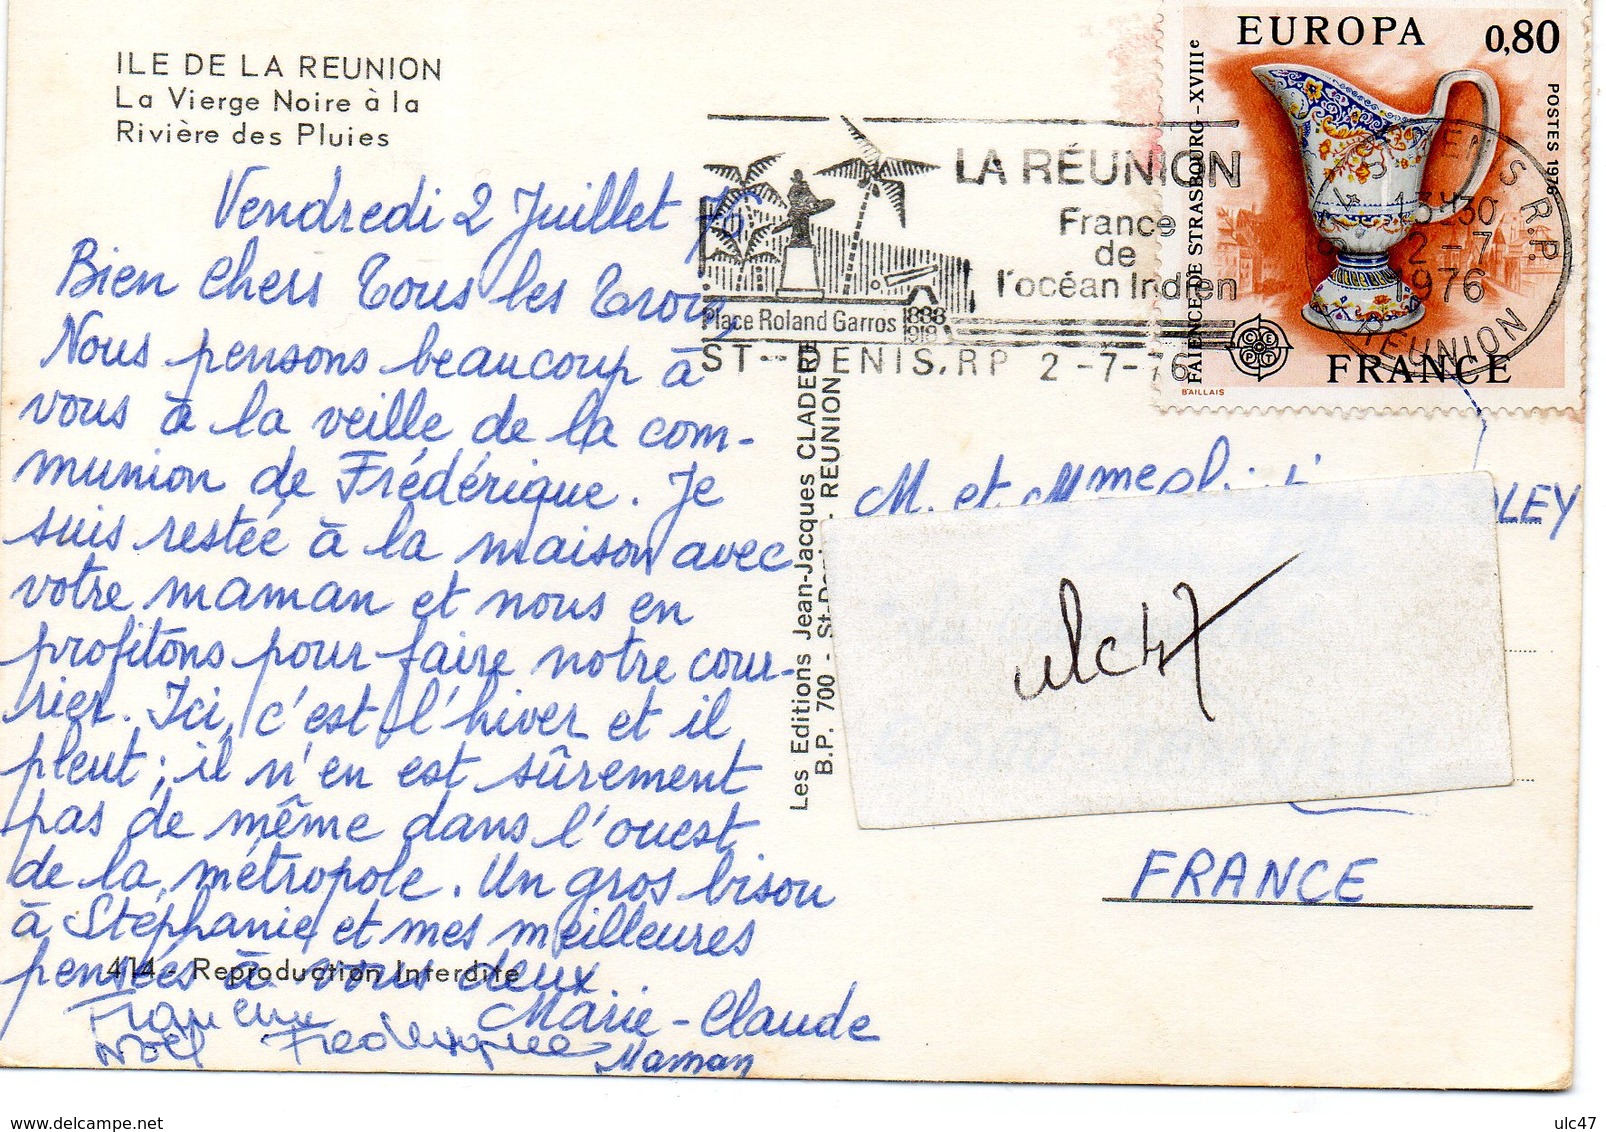 ILE DE LA REUNION
La Vierge Noire à la
Rivière des Pluies
Vendredi 2 Juillet 76
Bien chers Tous les Trois,
Nous pensons beaucoup à
vous à la veille de la com-
munion de Frédérique. Je
suis restée à la maison avec
votre maman et nous en
profitons pour faire notre cour-
rier. Ici, c'est l'hiver et il
pleut ; il n'en est sûrement
pas de même dans l'ouest
de la métropole. Un gros bisou
à Stéphanie et mes meilleures
pensées à vous deux
Marie-Claude
Noël Frédérique
Maman
414 - Reproduction Interdite
Les Editions Jean-Jacques CLADERE
B.P. 700 - St-Denis - REUNION
LA RÉUNION
France
de
l'océan Indien
Place Roland Garros 1888
1918
ST-DENIS.RP 2-7-76
EUROPA 0,80
FAIENCE DE STRASBOURG-XVIIIe
POSTES 1976
CEPT
FRANCE
BAILLAIS
ST DENIS R.P.
13H30
2-7
1976
REUNION
M. et Mme
OLEY
ulc47
FRANCE
ulc47